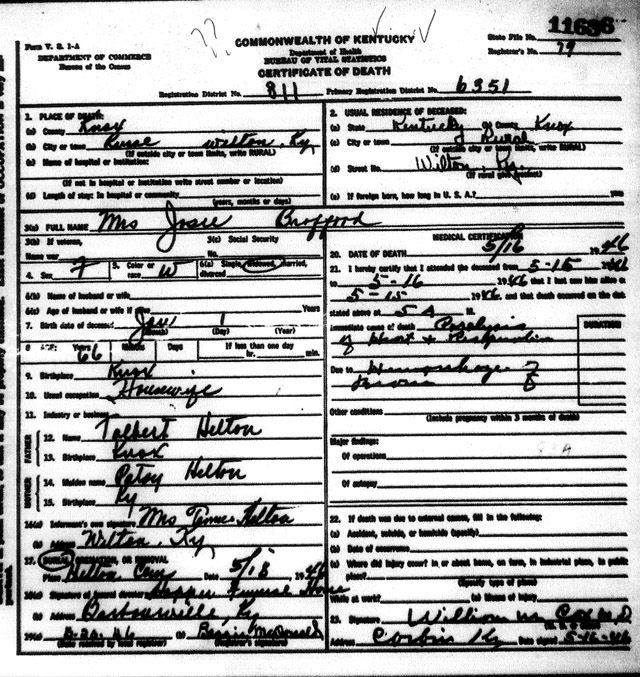 11636
COMMONWEALTH OF KENTUCKY
Form V. S. 1-A
DEPARTMENT OF COMMERCE
Bureau of the Census
Department of Health
BUREAU OF VITAL STATISTICS
CERTIFICATE OF DEATH
State File No.
Registrar's No. 79
Registration District No. 811 Primary Registration District No. 6351
1. PLACE OF DEATH:
(a) County Knox
(b) City or town Wilton, Ky
(If outside city or town limits, write RURAL)
(c) Name of hospital or institution:
(If not in hospital or institution write street number or location)
(d) Length of stay: In hospital or community
(years, months or days)
2. USUAL RESIDENCE OF DECEASED:
(a) State Kentucky (b) County Knox
(c) City or town Rural
(If outside city or town limits, write RURAL)
(d) Street No. Wilton Ky.
(If rural give precinct)
(e) If foreign born, how long in U. S. A.? years
3(a) FULL NAME Mrs Josie
3(b) If veteran, name war
3(c) Social Security No.
4. Sex F 5. Color or race W 6(a) Single, widowed, married, divorced
6(b) Name of husband or wife
6(c) Age of husband or wife if alive Years
7. Birth date of deceased 1
(Day) (Year)
8 AGE: Years 66 Months Days If less than one day
hr. min.
9. Birthplace Knox
10. Usual occupation Housewife
11. Industry or business
FATHER
12. Name Talbert Helton
13. Birthplace Knox
MOTHER
14. Maiden name Patsy Helton
15. Birthplace Ky
16(a) Informant's own signature Mrs Helton
(b) Address Wilton, Ky
17. BURIAL, CREMATION, OR REMOVAL
Place Helton Cem Date 5/18 1946
18(a) Signature of funeral director Hopper Funeral Home
(b) Address Barbourville, Ky
19(a) (b)
(Date received by local registrar) (Registrar's signature)
MEDICAL CERTIFICATION
20. DATE OF DEATH 5/16 1946
21. I hereby certify that I attended the deceased from 5-15 1946
to 5-16 1946 that I last saw him alive on
5-15 1946, and that death occurred on the date
stated above at 5 A M.
Immediate cause of death Paralysis
of Heart & Respiration
DURATION
Due to Hemorrhage of
Other conditions
(Include pregnancy within 3 months of death)
Major findings:
Of operations
Of autopsy
22. If death was due to external causes, fill in the following:
(a) Accident, suicide, or homicide (specify)
(b) Date of occurrence
(c) Where did injury occur? In or about home, on farm, in industrial place, in public place?
(Specify type of place)
While at work? (e) Means of injury
23. Signature William M. Cox M.D.
Address Corbin Ky Date signed 5-16-46